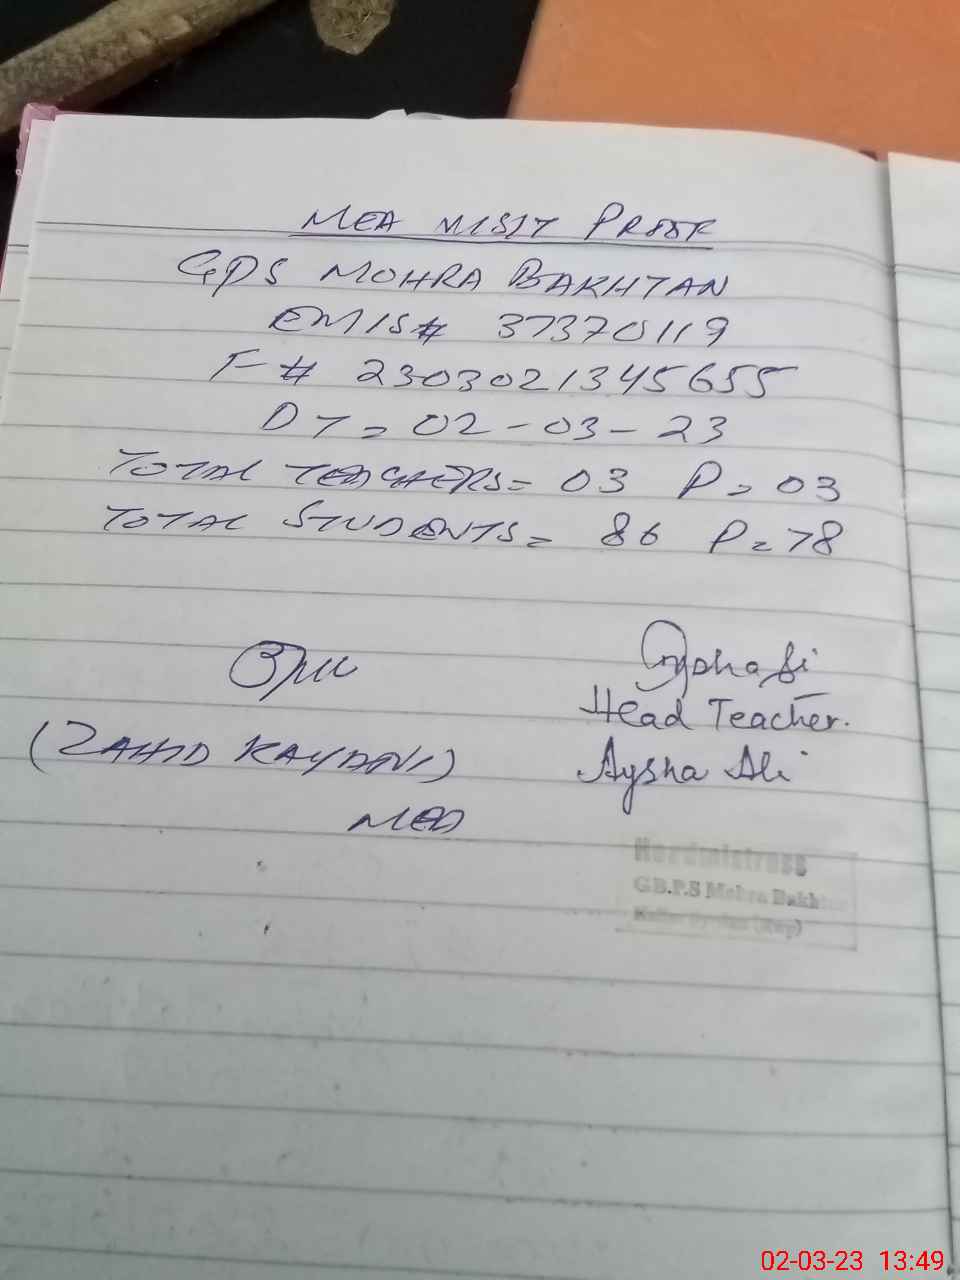 MEA VISIT PROOF
GPS MOHRA BAKHTAN
EMIS# 37370119
F# 2303021345655
DT= 02-03-23
TOTAL TEACHERS= 03 P= 03
TOTAL STUDENTS= 86 P=78
Head Teacher.
(ZAHID KAYANI) Aysha Ali
MEA
Headmistress
G.B.P.S Mohra Bakhtan
(Rwp)
02-03-23 13:49